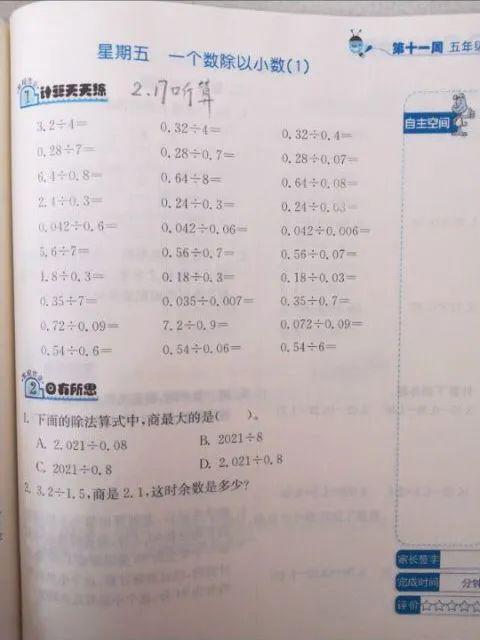 星期五 一个数除以小数(1)
第十一周 五年级
1 计算天天练 2.17听算
3.2÷4= 0.32÷4= 0.32÷0.4=
0.28÷7= 0.28÷0.7= 0.28÷0.07=
6.4÷0.8= 0.64÷8= 0.64÷0.08=
2.4÷0.3= 0.24÷0.3= 0.24÷0.03=
0.042÷0.6= 0.042÷0.06= 0.042÷0.006=
5.6÷7= 0.56÷0.7= 0.56÷0.07=
1.8÷0.3= 0.18÷0.3= 0.18÷0.03=
0.35÷7= 0.035÷0.007= 0.35÷0.7=
0.72÷0.09= 7.2÷0.9= 0.072÷0.09=
0.54÷0.6= 0.54÷0.06= 0.54÷6=
自主空间
2 日有所思
1. 下面的除法算式中,商最大的是( )。
A. 2.021÷0.08 B. 2021÷8
C. 2021÷0.8 D. 2.021÷0.8
2. 3.2÷1.5,商是2.1,这时余数是多少?
家长签字
完成时间 分钟
评价 ☆☆☆☆